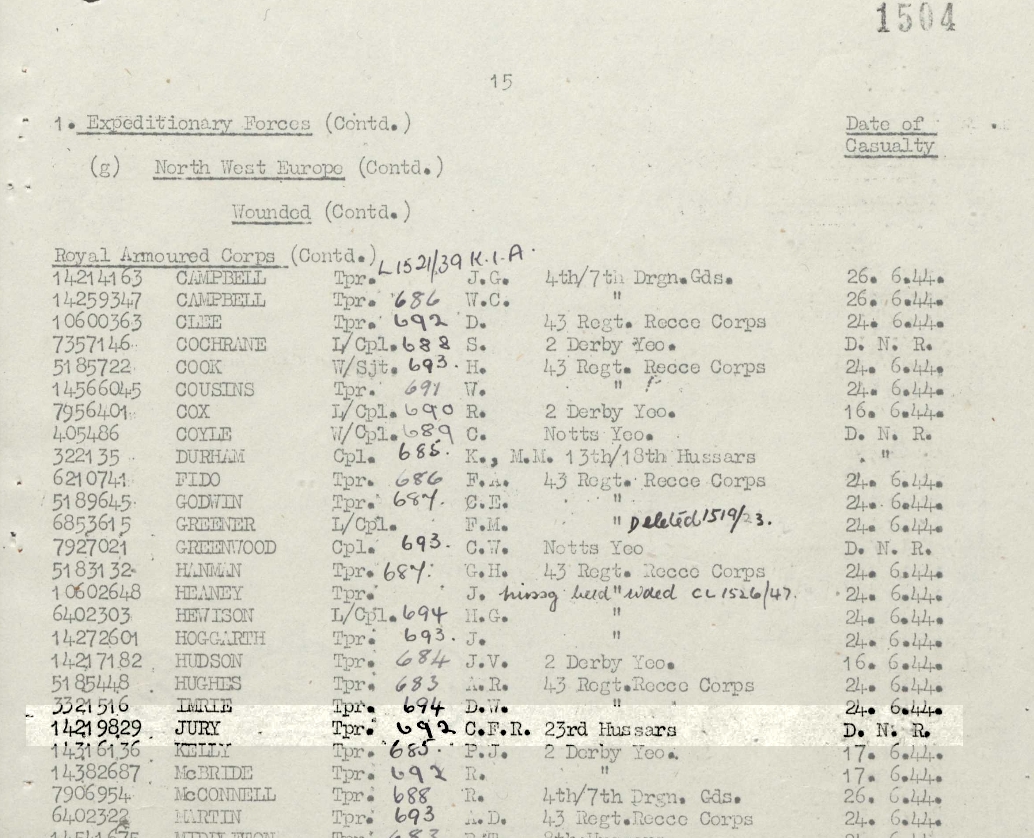 1504
15
1. Expeditionary Forces (Contd.) Date of
Casualty
(g) North West Europe (Contd.)
Wounded (Contd.)
Royal Armoured Corps (Contd.) L1521/39 K.I.A.
14214163 CAMPBELL Tpr. J.G. 4th/7th Drgn.Gds. 26. 6.44.
14259347 CAMPBELL Tpr. 686 W.C. " 26. 6.44.
10600363 CLEE Tpr. 692 D. 43 Regt. Recce Corps 24. 6.44.
7357146 COCHRANE L/Cpl. 688 S. 2 Derby Yeo. D. N. R.
5185722 COOK W/Sjt. 693. H. 43 Regt. Recce Corps 24. 6.44.
14566045 COUSINS Tpr. 691 W. " 24. 6.44.
7956401 COX L/Cpl. 690 R. 2 Derby Yeo. 16. 6.44.
405486 COYLE W/Cpl. 689 C. Notts Yeo. D. N. R.
322135 DURHAM Cpl. 685. K., M.M. 13th/18th Hussars "
6210741 FIDO Tpr. 686 43 Regt. Recce Corps 24. 6.44.
5189645 GODWIN Tpr. 687. C.E. " 24. 6.44.
6853615 GREENER L/Cpl. F.M. " Deleted 1519/23. 24. 6.44.
7927021 GREENWOOD Cpl. 693. C.W. Notts Yeo D. N. R.
5183132 HANMAN Tpr. 687. G.H. 43 Regt. Recce Corps 24. 6.44.
10602648 HEANEY Tpr. J. " CL1526/47. 24. 6.44.
6402303 HEWISON L/Cpl. 694 H.G. " 24. 6.44.
14272601 HOGGARTH Tpr. 693. J. " 24. 6.44.
14217182 HUDSON Tpr. 684 J.V. 2 Derby Yeo. 16. 6.44.
5185448 HUGHES Tpr. 683 A.R. 43 Regt.Recce Corps 24. 6.44.
3321516 IMRIE Tpr. 694 D.W. " 24. 6.44.
14219829 JURY Tpr. 692 C.F.R. 23rd Hussars D. N. R.
14316136 KELLY Tpr. 685. P.J. 2 Derby Yeo. 17. 6.44.
14382687 McBRIDE Tpr. 692 R. " 17. 6.44.
7906954 McCONNELL Tpr. 688 R. 4th/7th Drgn. Gds. 26. 6.44.
6402322 MARTIN Tpr. 693 A.D. 43 Regt. Recce Corps 24. 6.44.